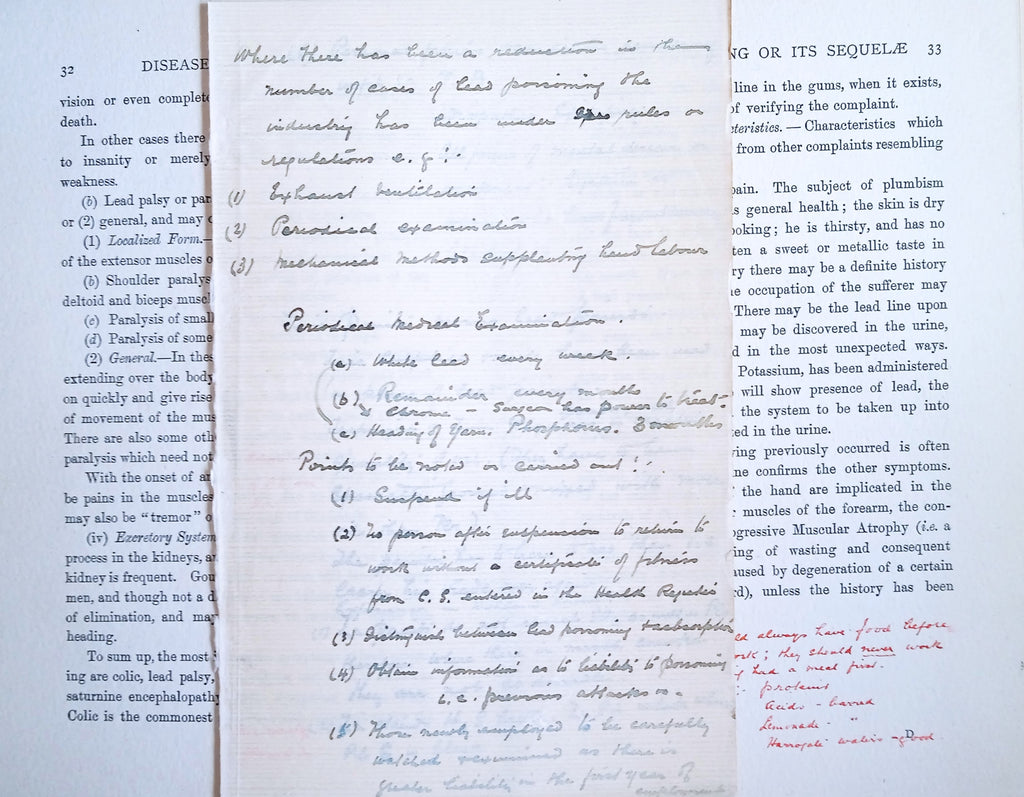 32 DISEASE
vision or even complete
death.
In other cases there
to insanity or merely
weakness.
(b) Lead palsy or par
or (2) general, and may
(1) Localized Form.—
of the extensor muscles o
(b) Shoulder paralys
deltoid and biceps muscl
(c) Paralysis of smal
(d) Paralysis of some
(2) General.—In the
extending over the body
on quickly and give rise
of movement of the mus
There are also some oth
paralysis which need not
With the onset of an
be pains in the muscles
may also be "tremor" o
(iv) Excretory System
process in the kidneys, a
kidney is frequent. Gou
men, and though not a d
of elimination, and may
heading.
To sum up, the most
ing are colic, lead palsy,
saturnine encephalopath
Colic is the commonest
Where there has been a reduction in the
number of cases of lead poisoning the
industry has been under rules or
regulations e.g:-
(1) Exhaust Ventilation
(2) Periodical examination
(3) Mechanical methods supplanting hand labour
Periodical Medical Examination.
(a) White lead every week.
(b) Remainder every month
& Chrome - Surgeon has power to treat.
(c) Heading of Yarn. Phosphorus. 3 months
Points to be noted or carried out:-
(1) Suspend if ill
(2) No person after suspension to return to
work without a certificate of fitness
from C.S. entered in the Health Register
(3) Distinguish between lead poisoning & absorption
(4) Obtain information as to liability to poisoning
i.e. previous attacks
(5) Those newly employed to be carefully
watched & examined as there is
greater liability in the first year of
employment
NG OR ITS SEQUELÆ 33
line in the gums, when it exists,
of verifying the complaint.
cteristics.—Characteristics which
from other complaints resembling
pain. The subject of plumbism
s general health; the skin is dry
oking; he is thirsty, and has no
ten a sweet or metallic taste in
ry there may be a definite history
e occupation of the sufferer may
There may be the lead line upon
may be discovered in the urine,
d in the most unexpected ways.
Potassium, has been administered
will show presence of lead, the
the system to be taken up into
ted in the urine.
ving previously occurred is often
ne confirms the other symptoms.
the hand are implicated in the
muscles of the forearm, the con-
ogressive Muscular Atrophy (i.e. a
ing of wasting and consequent
aused by degeneration of a certain
rd), unless the history has been
ed always have food before
ork; they should never work
had a meal first.
proteins
Acids - barred
Lemonade - "
Harrogate waters - good
D